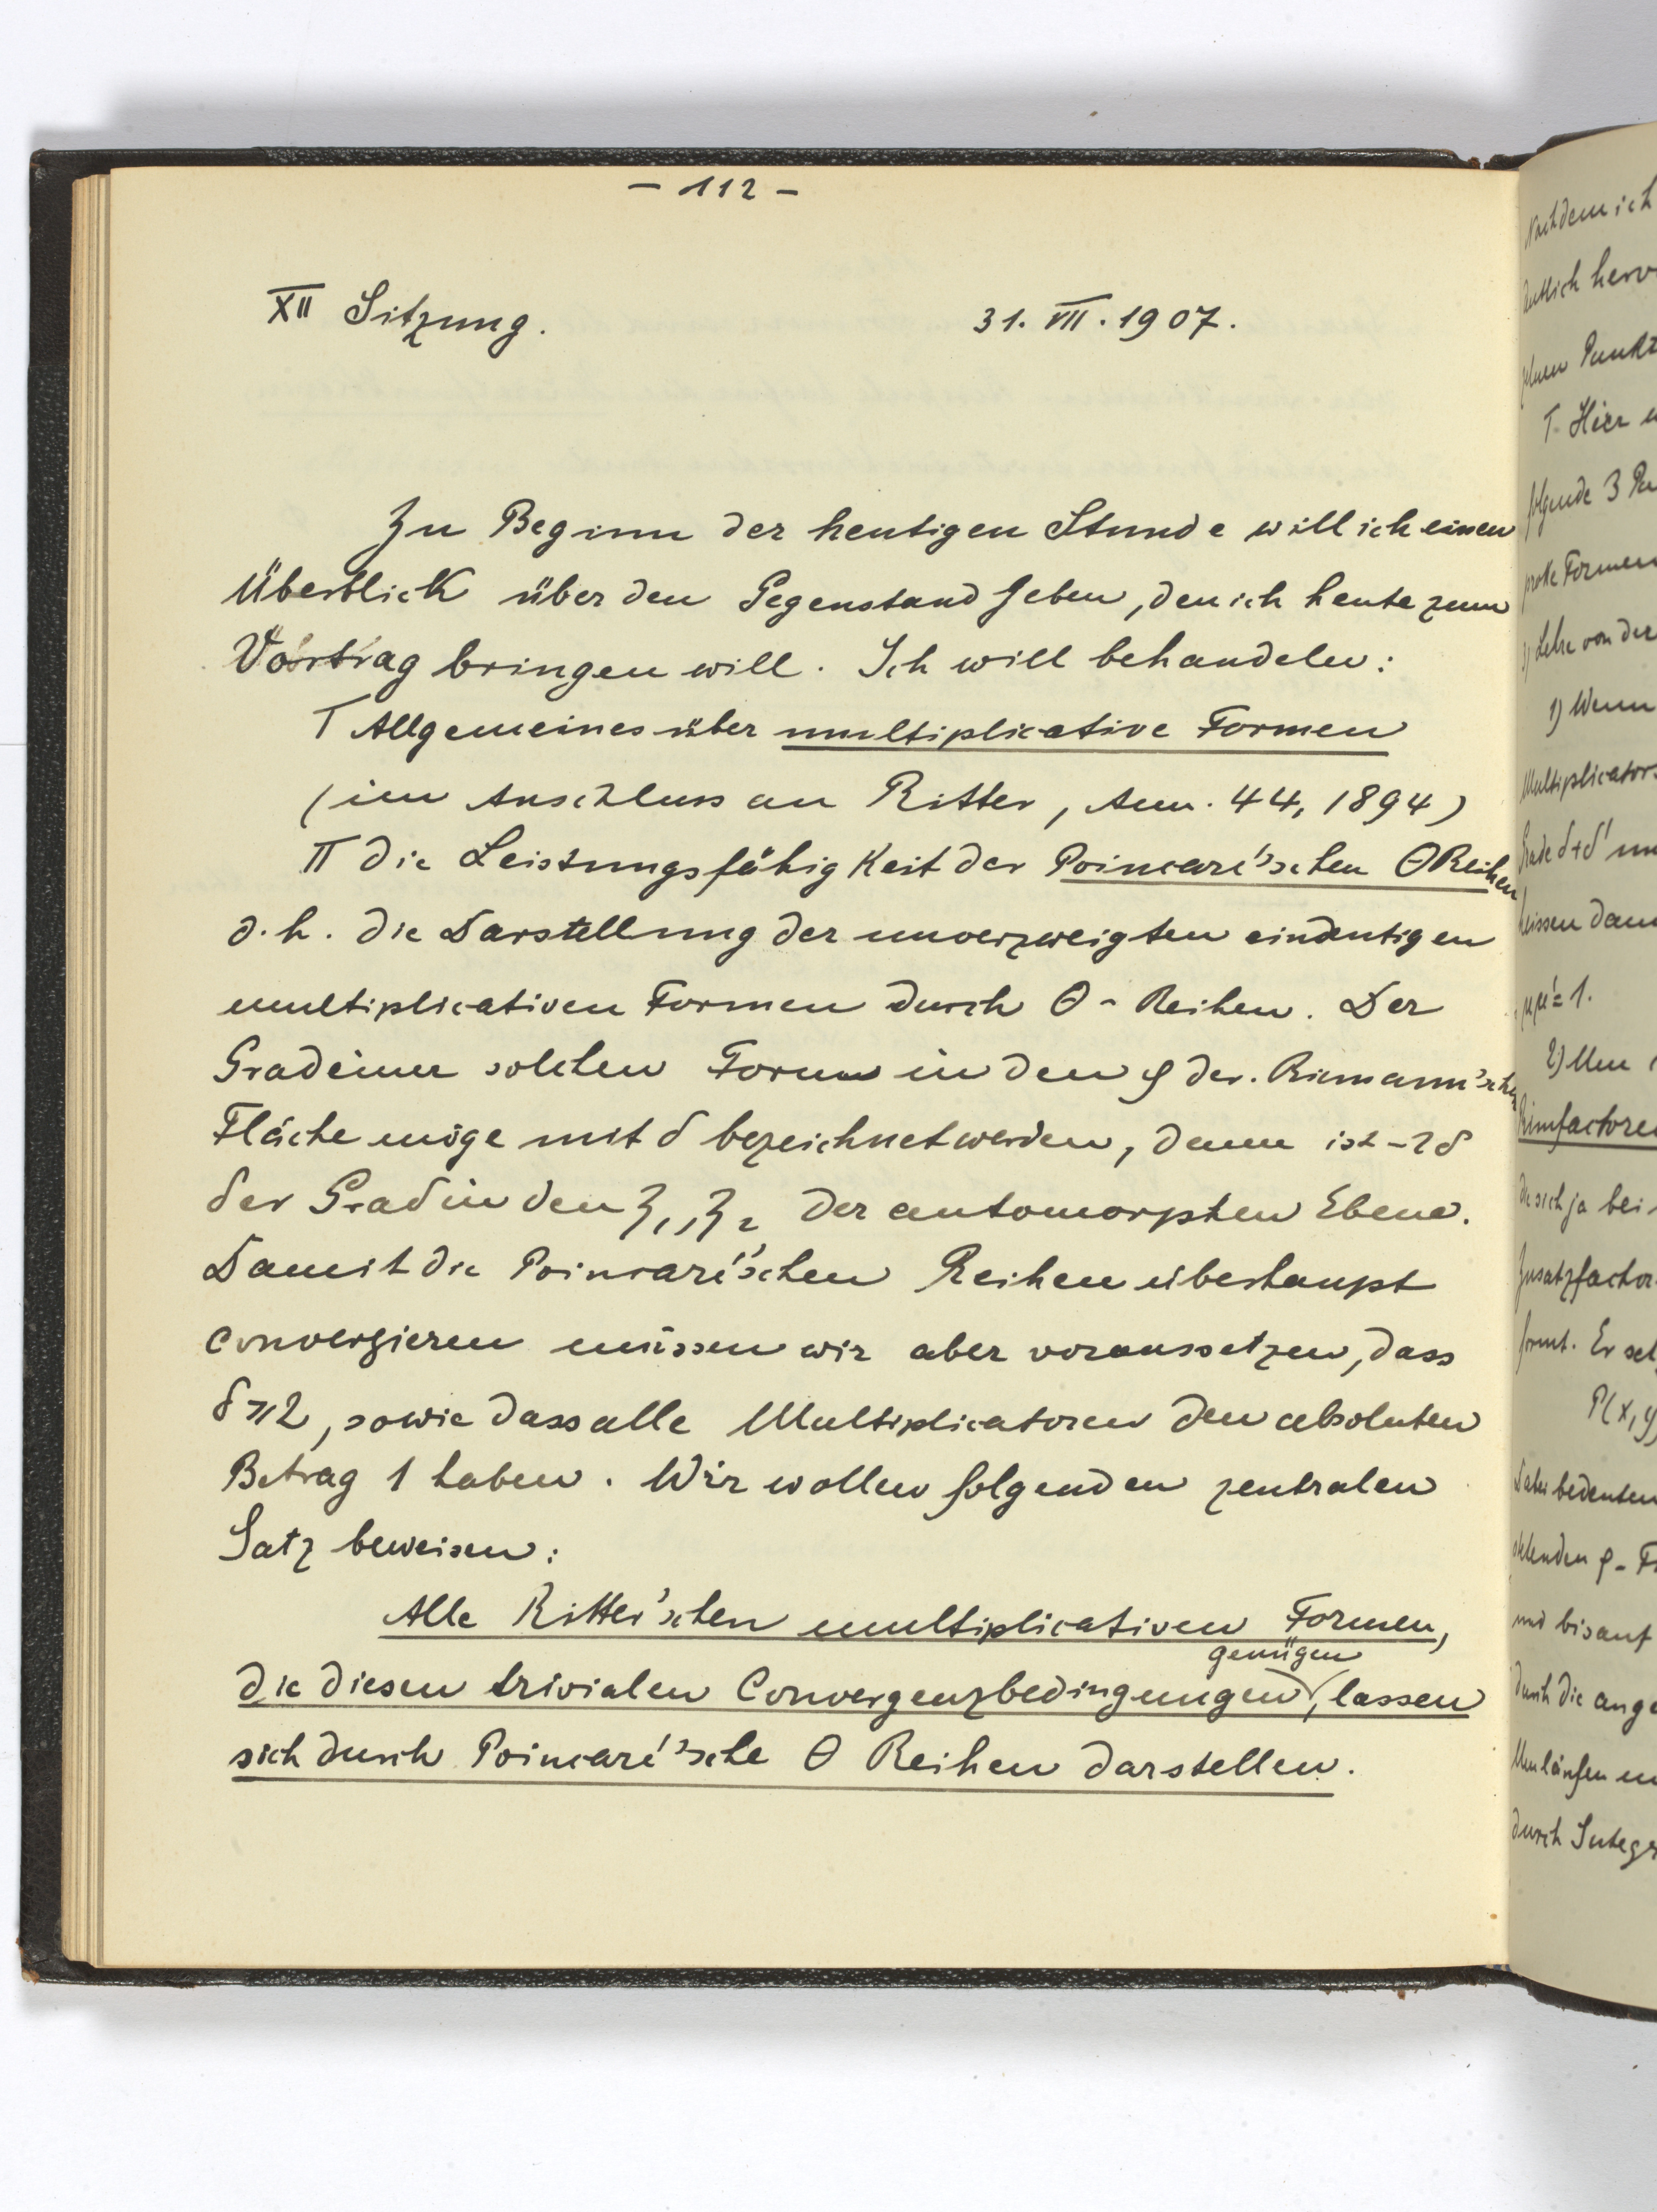 – 112 –
XII Sitzung. 31. VII. 1907.
Zu Beginn der heutigen Stunde will ich einen
Überblick über den Gegenstand geben, den ich heute zum
Vortrag bringen will. Ich will behandeln:
I Allgemeines über multiplicative Formen
(im Anschluss an Ritter, Ann. 44, 1894)
II die Leistungsfähigkeit der Poincaré'schen Θ Reihen
d. h. die Darstellung der unverzweigten eindeutigen
multiplicativen Formen durch Θ - Reihen. Der
Grad einer solchen Form in den φ der Riemann'schen
Fläche möge mit δ bezeichnet werden, dann ist -2δ
der Grad in den ζ₁, ζ₂ der automorphen Ebene.
Damit die Poincaré'schen Reihen überhaupt
convergieren müssen wir aber voraussetzen, dass
δ ≥ 2, sowie dass alle Multiplicatoren den absoluten
Betrag 1 haben. Wir wollen folgenden zentralen
Satz beweisen:
Alle Ritter'schen multiplicativen Formen,
genügen
die diesen trivialen Convergenzbedingungen, lassen
sich durch Poincaré'sche Θ Reihen darstellen.
Nachdem ich
Punkt
I. Hier
folgende 3
Formen
Lehre von der
1) Wenn
Multiplicators
Grade δ+δ'
μμ'=1.
2)
Primfactoren
die sich ja bei
Zusatzfactor
formt. Er
P(x,y)
Dabei bedeuten
und bis auf
durch die
Umläufen
durch